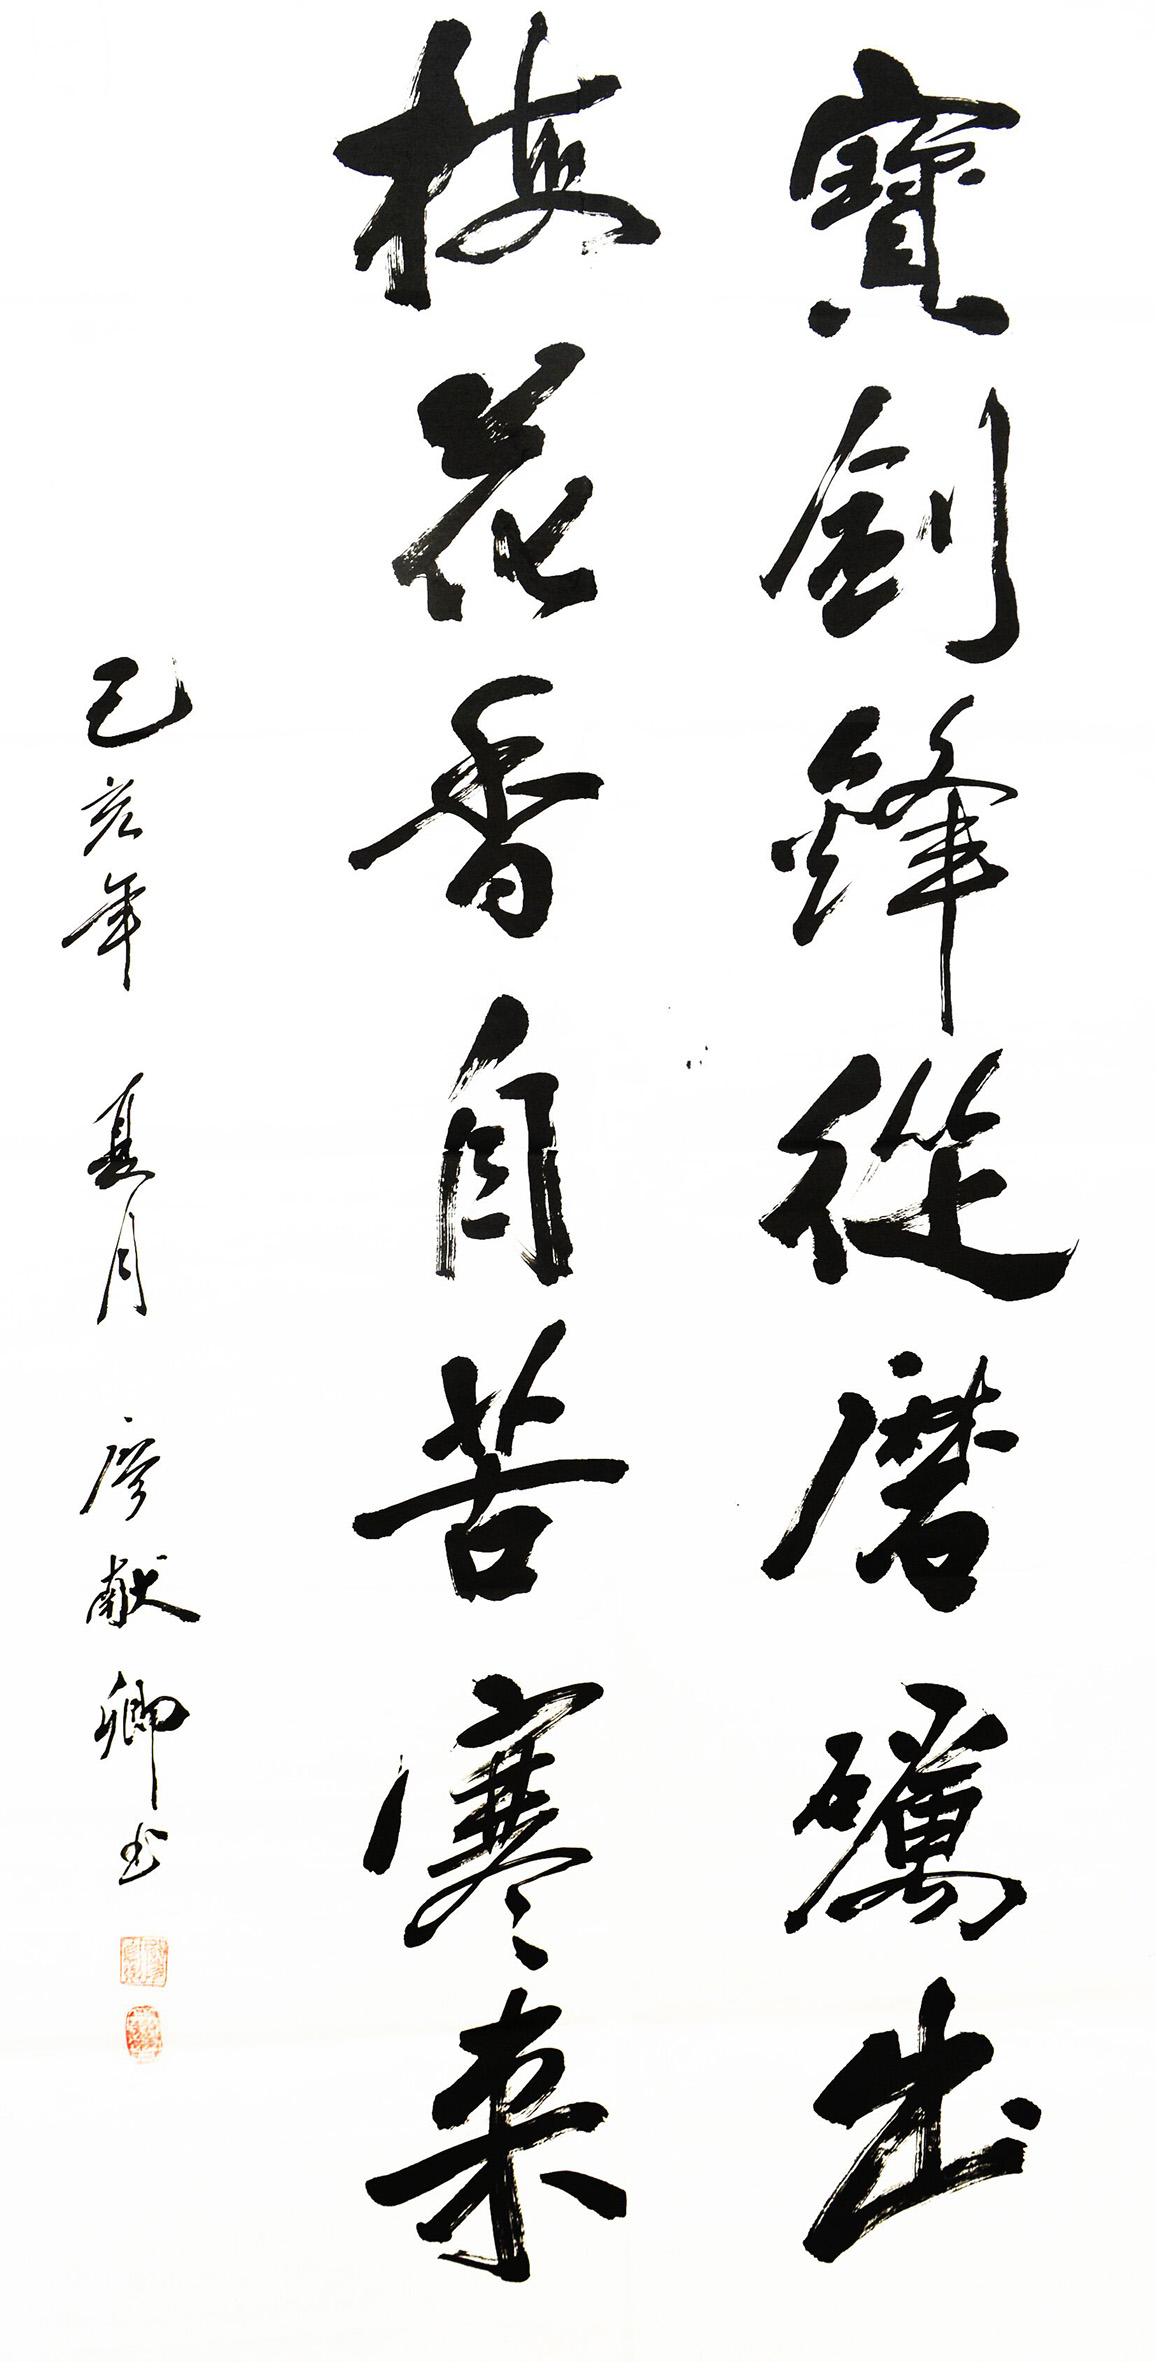 寶劍鋒從磨礪出
梅花香自苦寒來
己亥年 夏月 廖献卿书